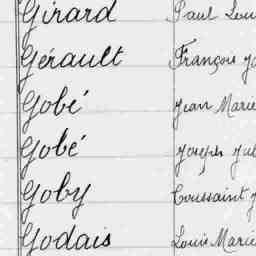 Girard Paul Lou
Gérault François J
Gobé Jean Marie
Gobé Joseph Jul
Goby Toussaint J
Godais Louis Marie